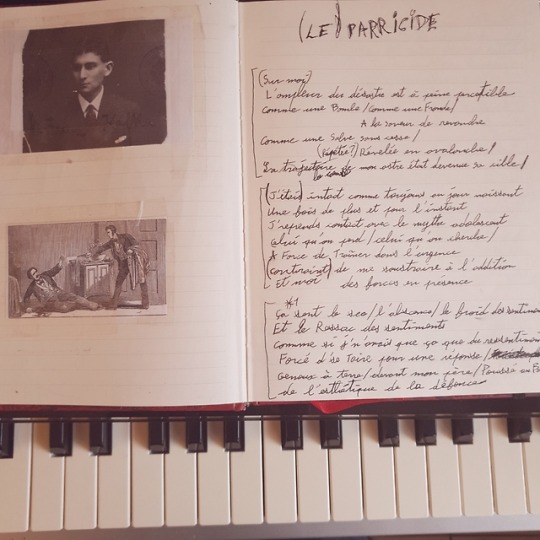 (LE) PARRICIDE
(Sur moi)
L'ampleur du désastre est à peine perceptible
Comme une Bombe / Comme une Fronde /
A la saveur de revanche
Comme une Salve sans cesse /
(Répétée?) Révélée en avalanche /
La trajectoire de mon astre était devenue sa cible /
la comète
(J'étais) intact comme toujours au jour naissant
Une fois de plus et pour l'instant
J'reprends contact avec le mythe adolescent
Celui qu'on perd / celui qu'on cherche /
A Force de Traîner dans l'urgence
(Contraint) de me soustraire à l'addition
Et moi des forces en présence
#1
Ça sent le sec / l'absence / le froid des sentiments
Et le Ressac des sentiments
Comme si j'n'avais que ça que du ressentiment
Forcé d'se Taire pour une réponse /
Genoux à terre / devant mon père / Poussé au
de l'esthétique de la défonce